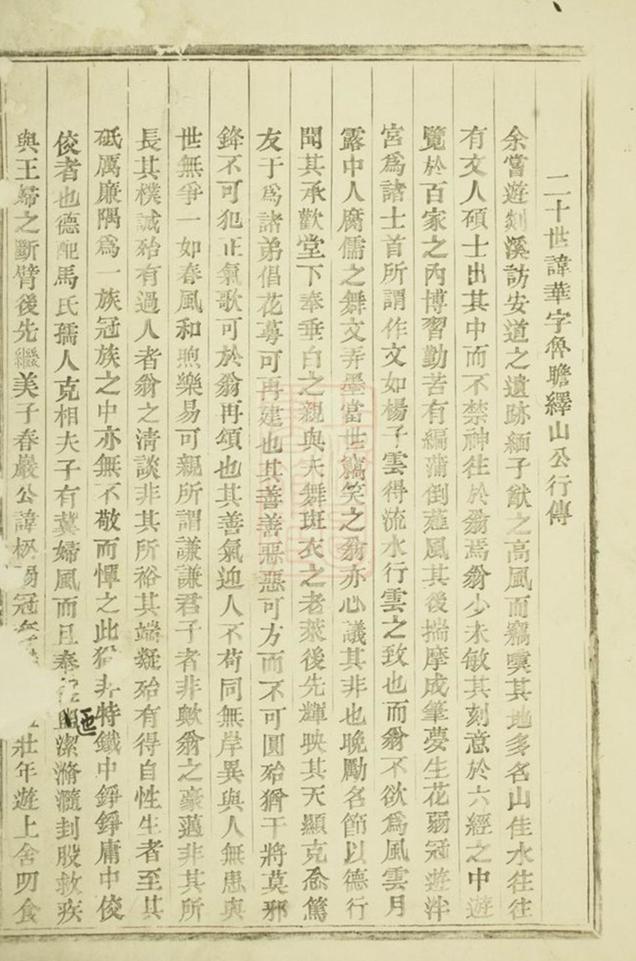 二十世諱華字魯瞻繹山公行傳
余嘗遊剡溪訪安道之遺跡緬子猷之高風而竊異其地多名山佳水往往
有文人碩士出其中而不禁神往於翁焉翁少末敏其刻意於六經之中遊
覽於百家之內博習勤苦有編蒲倒薤風其後揣摩成筆夢生花弱冠遊泮
宮爲諸士首所謂作文如楊子雲得流水行雲之致也而翁不欲爲風雲月
露中人腐儒之舞文弄墨當世竊笑之翁亦心議其非也晚勵名節以德行
聞其承歡堂下奉垂白之親與夫舞斑衣之老萊後先輝映其天顯克念篤
友于爲諸弟倡花萼可再建也其善善惡惡可方而不可圓殆猶干將莫邪
鋒不可犯正氣歌可於翁再頌也其善氣迎人不苟同無岸異與人無患與
世無爭一如春風和煦樂易可親所謂謙謙君子者非歟翁之豪邁非其所
長其樸誠殆有過人者翁之淸談非其所裕其端凝殆有得自性生者至其
砥厲廉隅爲一族冠族之中亦無不敬而憚之此猶非特鐵中錚錚庸中佼
佼者也德配馬氏孺人克相夫子有冀婦風而且奉匜盥潔滫瀡封股救疾
與王婦之斷臂後先繼美子春嚴公諱 冠 壯年遊上舍叨食